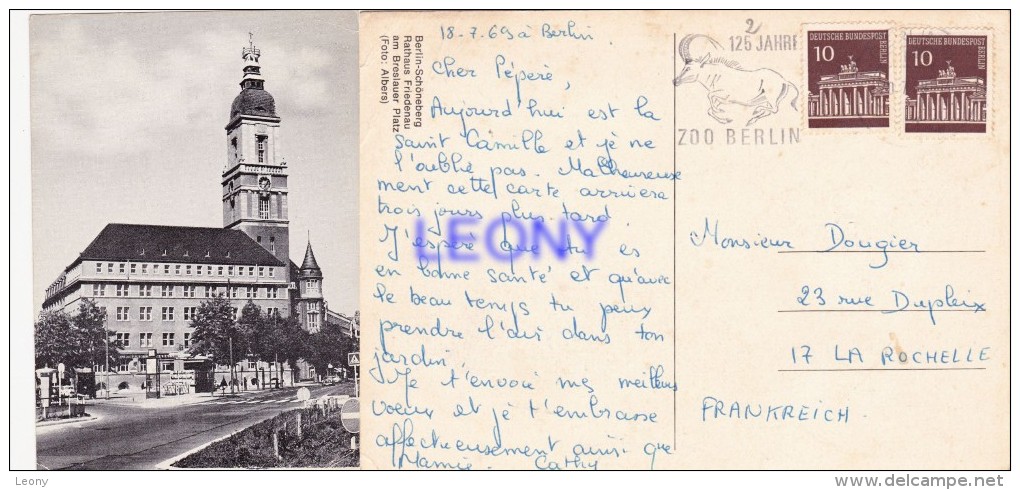 Berlin-Schöneberg
Rathaus Friedenau
am Breslauer Platz
(Foto: Albers)
18-7.69 à Berlin.
Cher Pépère,
Aujourd'hui est la
Saint Camille et je ne
l'oublie pas. Malheureuse
ment cette carte arrivera
trois jours plus tard
J'espère que tu es
en bonne santé et qu'avec
le beau temps tu peux
prendre l'air dans ton
jardin.
Je t'envoie mes meilleurs
voeux et je t'embrasse
affectueusement ainsi que
Mamie. Cathy
2
125 JAHRE
ZOO BERLIN
DEUTSCHE BUNDESPOST
10
BERLIN
DEUTSCHE BUNDESPOST
10
BERLIN
Monsieur Dougier
23 rue Dupleix
17 LA ROCHELLE
FRANKREICH.
LEONY
Leony
www.delcampe.net